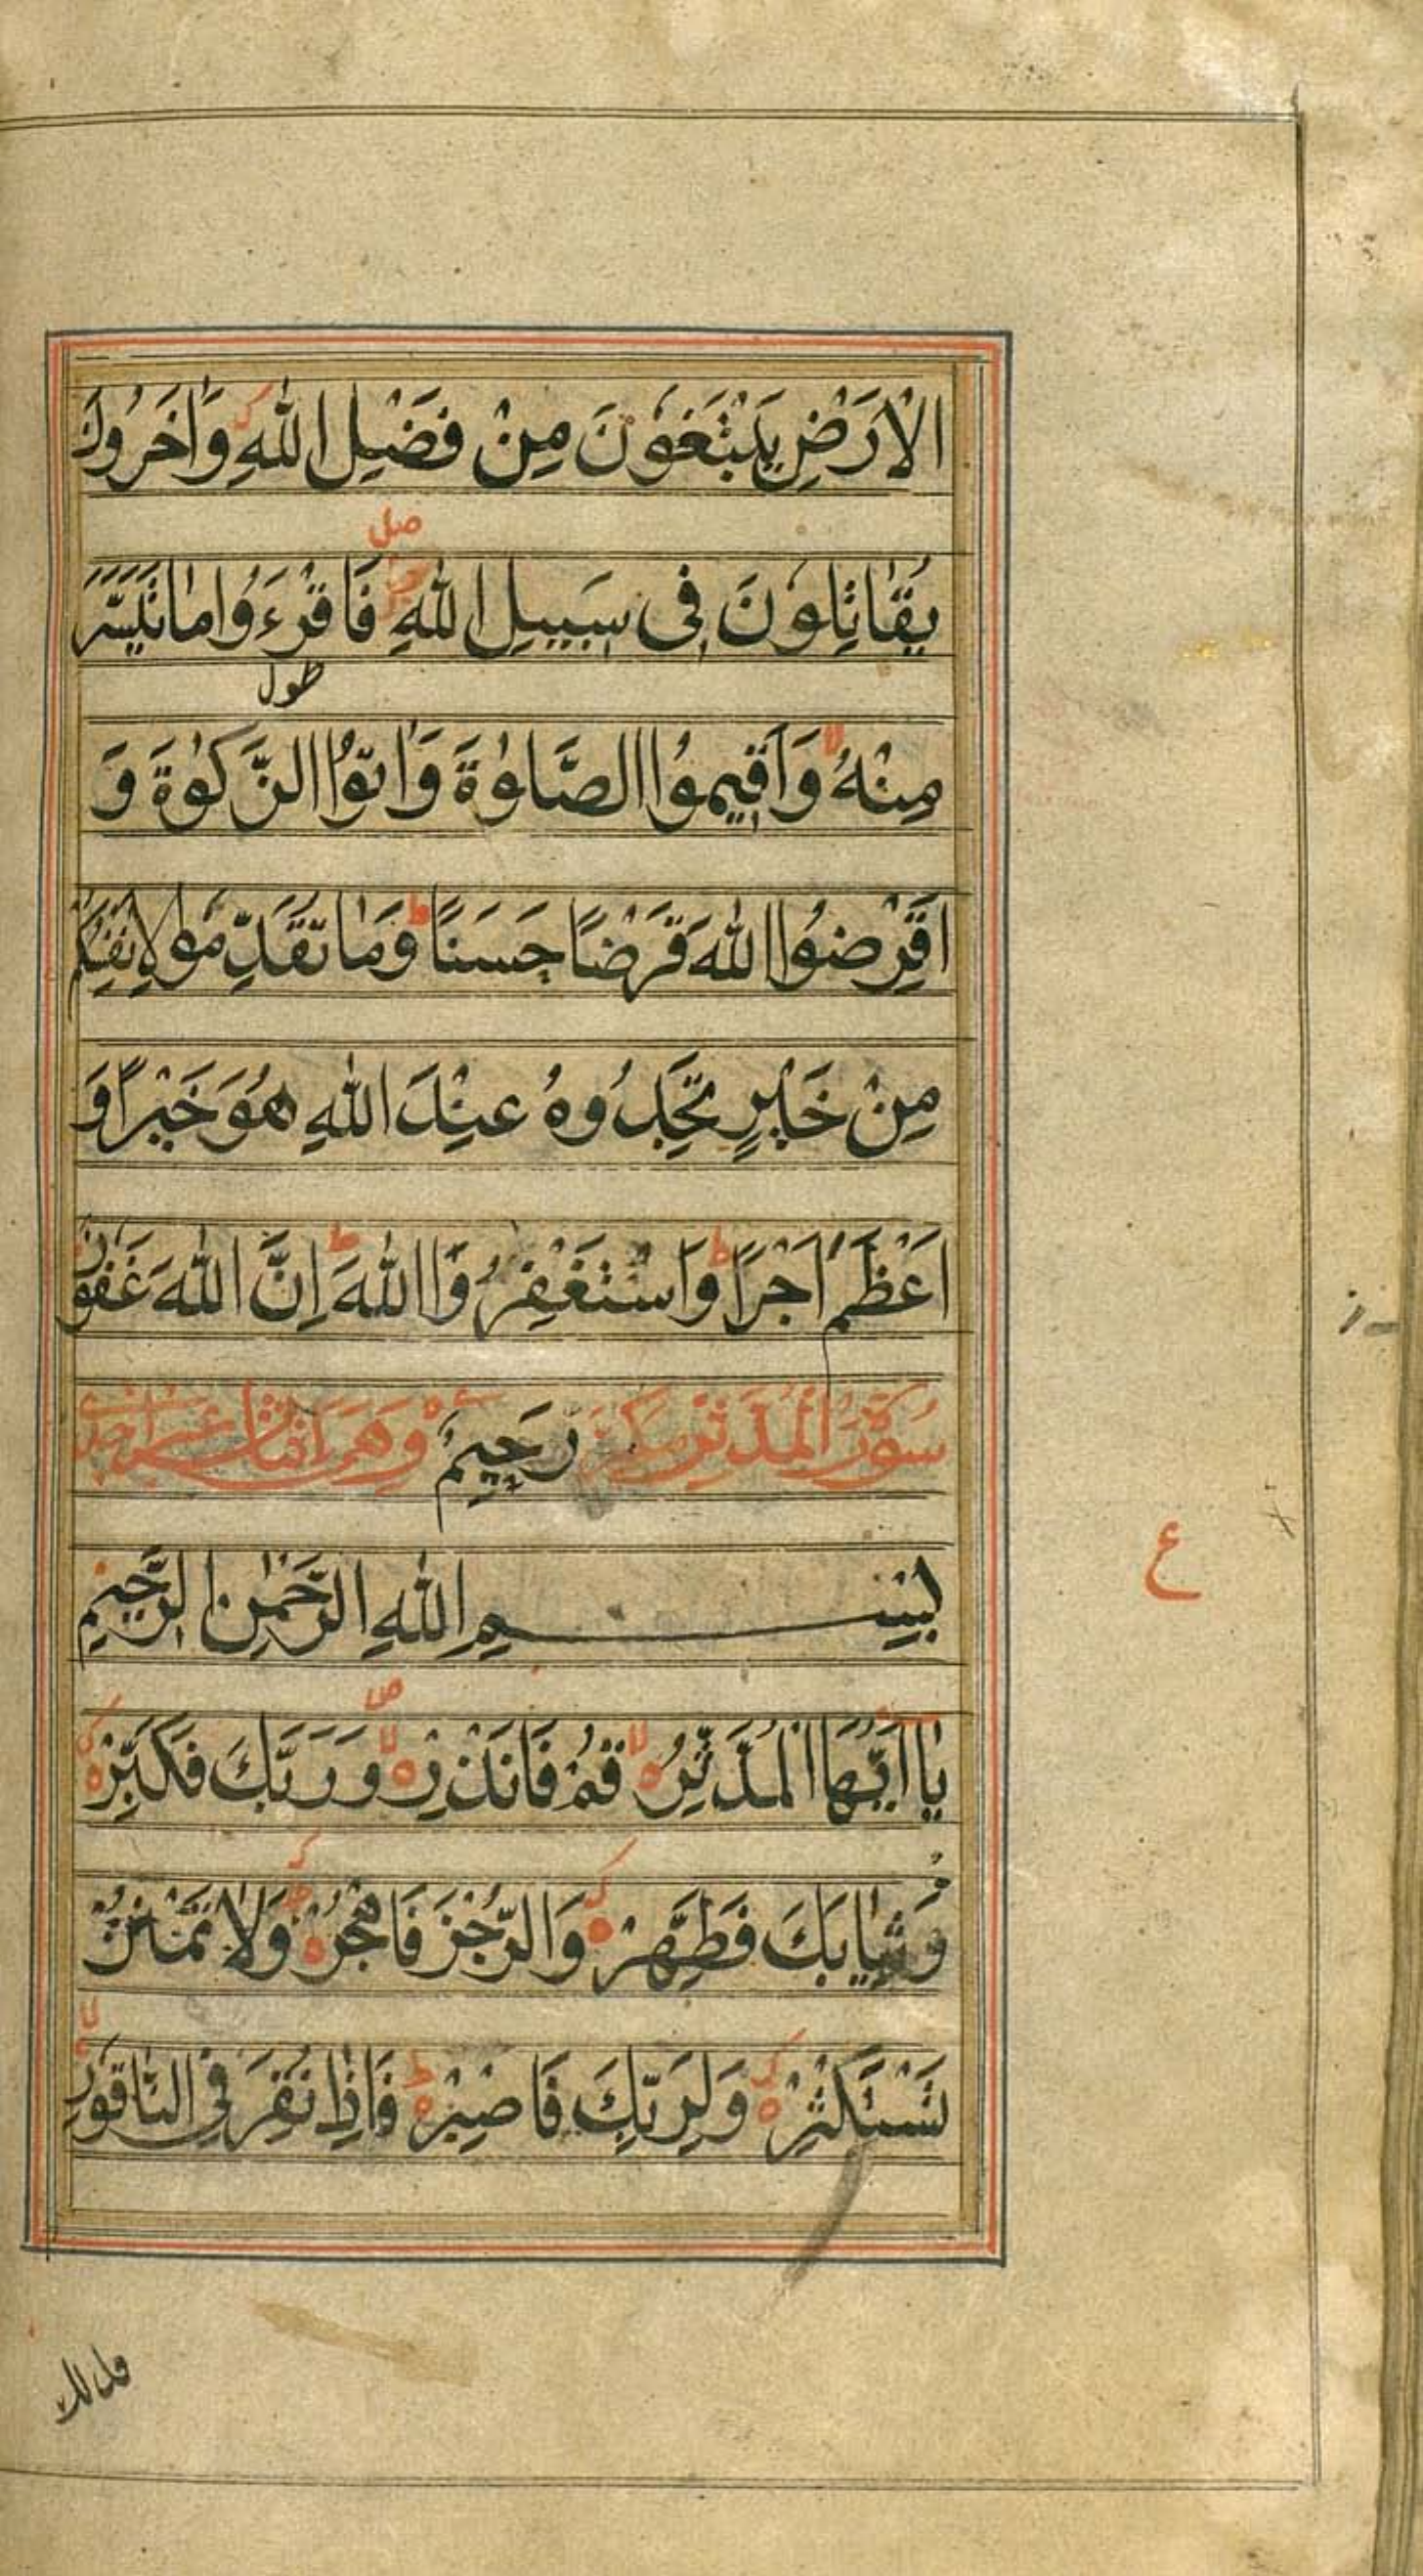 الْاَرْضِ يَبْتَغُوْنَ مِنْ فَضْلِ اللّٰهِ وَاٰخَرُوْنَ
صل
يُقَاتِلُوْنَ فِى سَبِيْلِ اللّٰهِ فَاقْرَءُوْا مَا تَيَسَّرَ
طول
مِنْهُ لا وَاَقِيْمُوا الصَّلٰوةَ وَاٰتُوا الزَّكٰوةَ وَ
اَقْرِضُوا اللّٰهَ قَرْضًا حَسَنًا ط وَمَا تُقَدِّمُوْا لِاَنْفُسِكُمْ
مِنْ خَيْرٍ تَجِدُوْهُ عِنْدَ اللّٰهِ هُوَ خَيْرًا وَ
اَعْظَمَ اَجْرًا ط وَاسْتَغْفِرُوا اللّٰهَ ط اِنَّ اللّٰهَ غَفُوْرٌ
سُوْرَةُ الْمُدَّثِّرِ مَكِّيَّة رَحِيْمٌ وَهِىَ
بِسْمِ اللّٰهِ الرَّحْمٰنِ الرَّحِيْمِ
يٰٓا اَيُّهَا الْمُدَّثِّرُ ه لا قُمْ فَاَنْذِرْ ه لا ص وَرَبَّكَ فَكَبِّرْ ه
وَثِيَابَكَ فَطَهِّرْ ه وَالرُّجْزَ فَاهْجُرْ ه وَلَا تَمْنُنْ
تَسْتَكْثِرُ ه وَلِرَبِّكَ فَاصْبِرْ ه ط فَاِذَا نُقِرَ فِى النَّاقُوْرِ لا
ع
فذلك